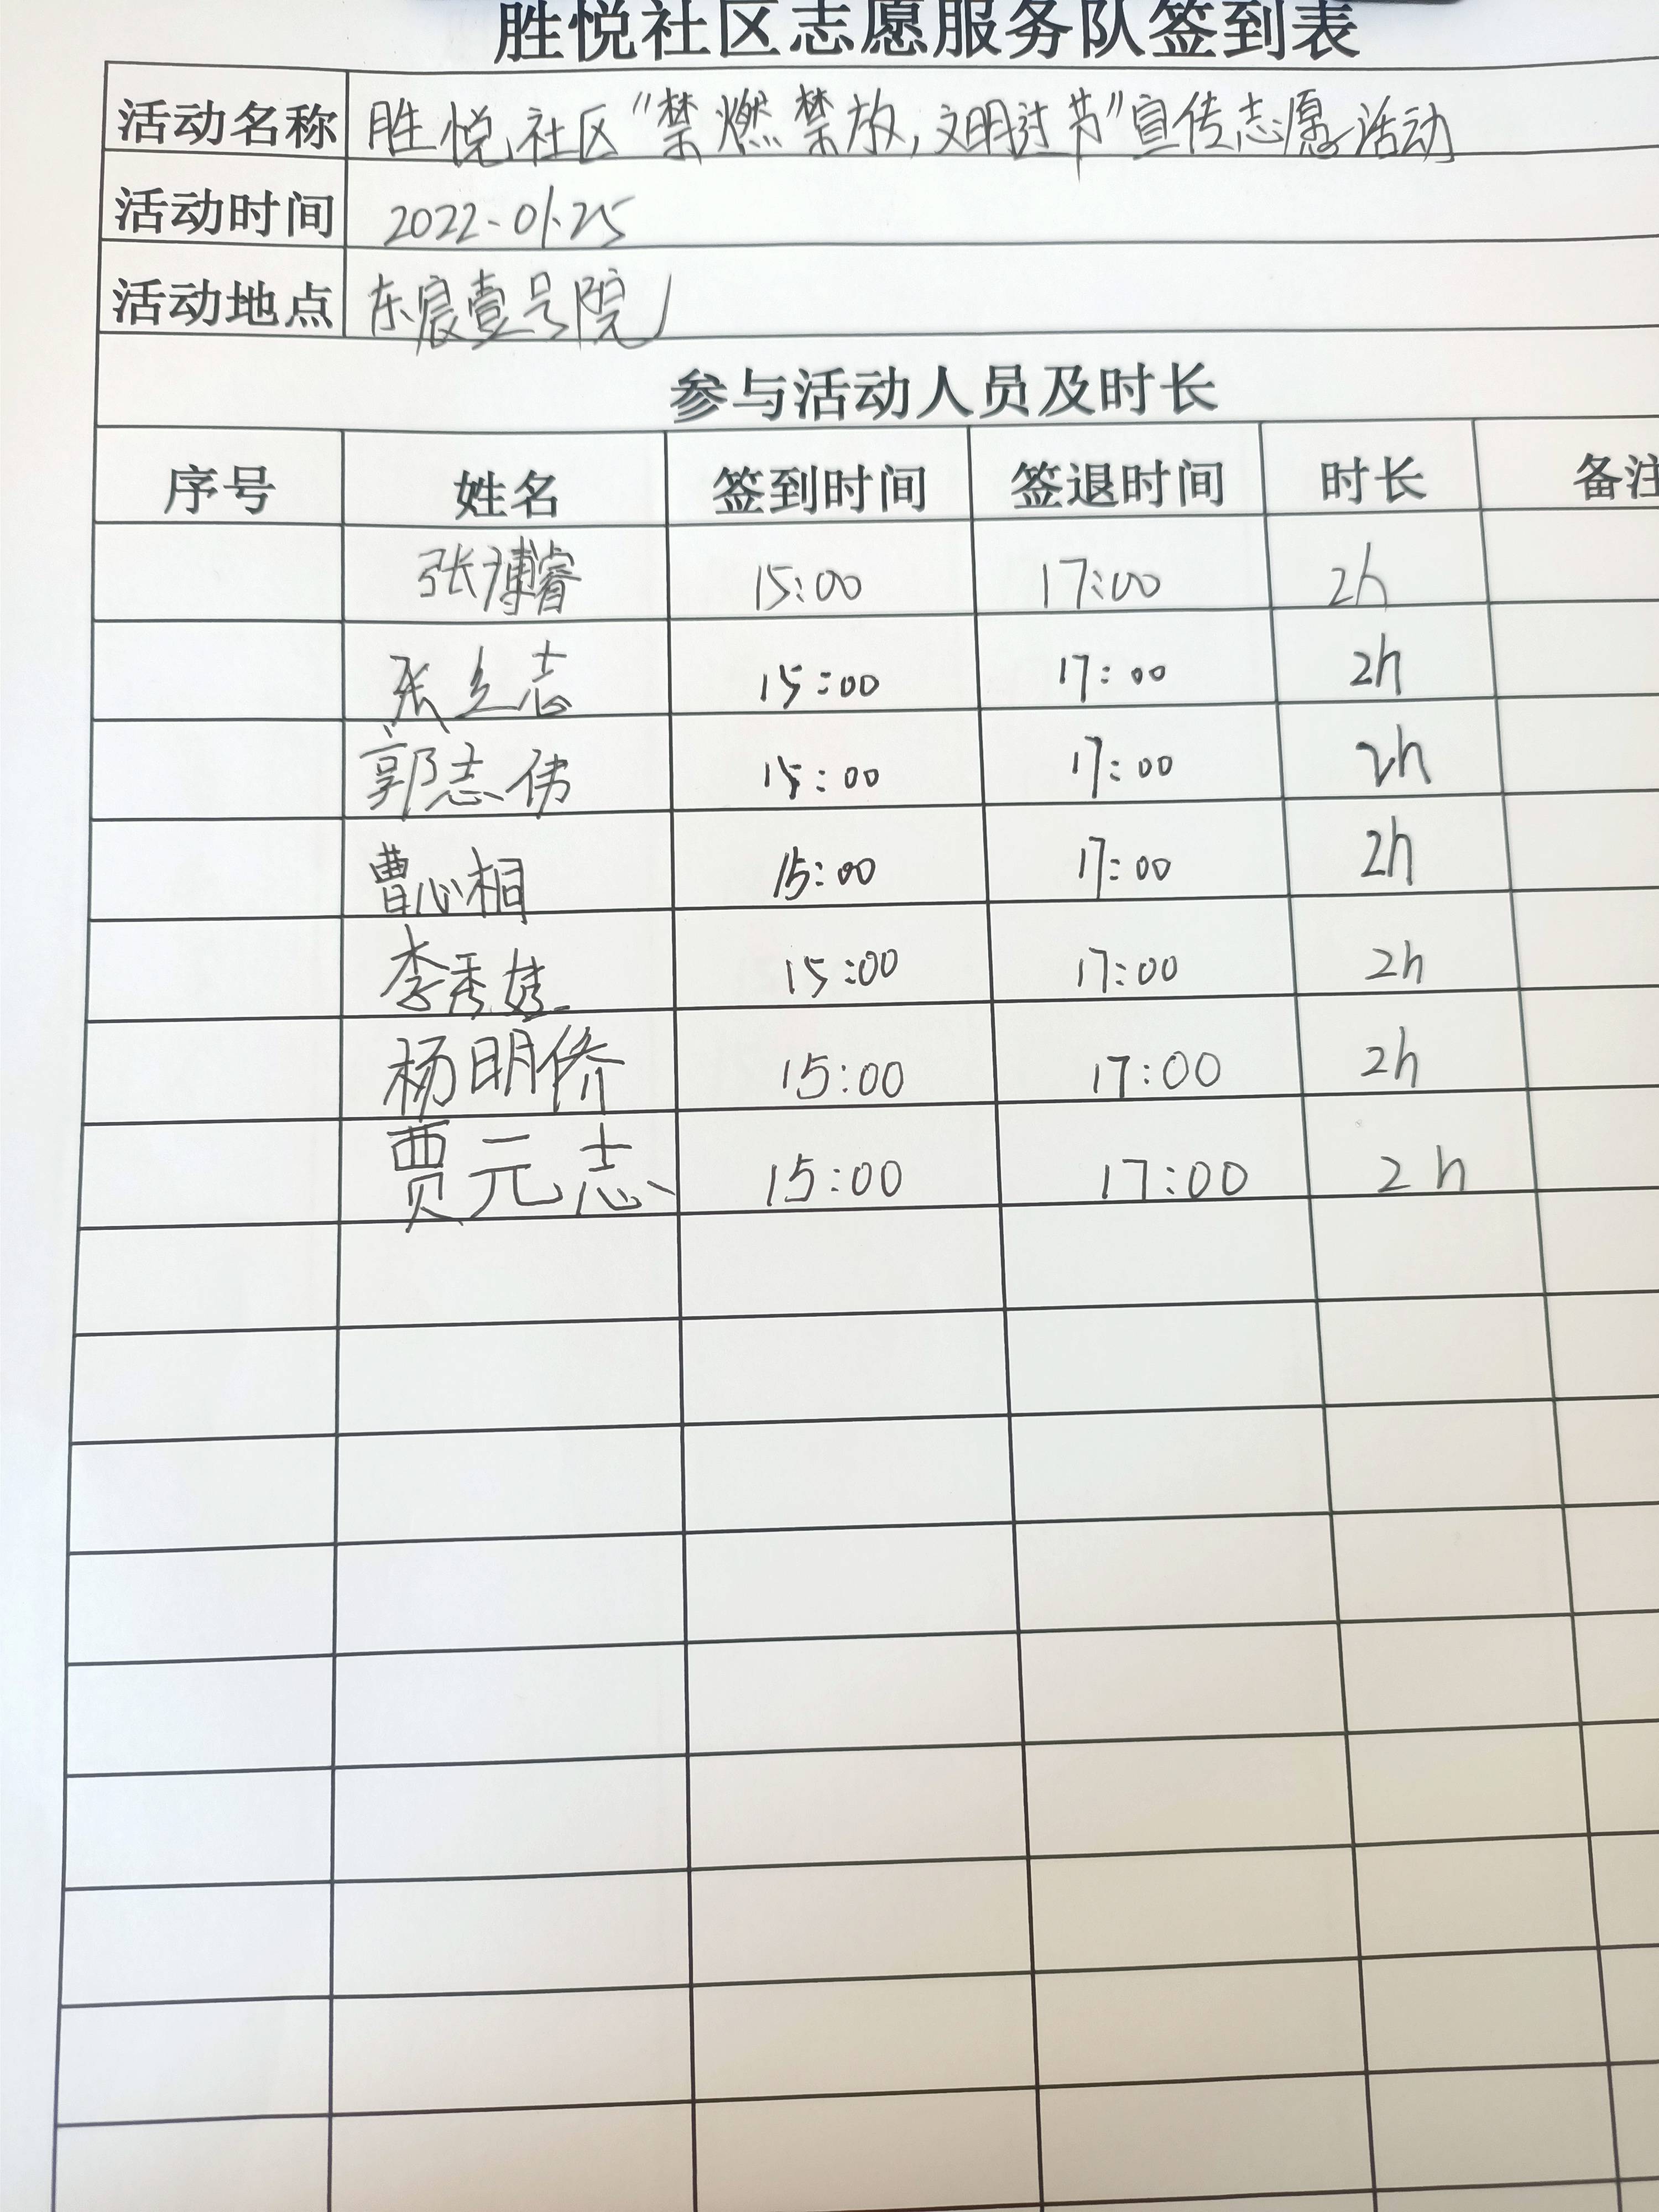 胜悦社区志愿服务队签到表
活动名称 胜悦社区“禁燃禁放,文明过节”宣传志愿活动
活动时间 2022-01-25
活动地点 东宸壹号院
参与活动人员及时长
序号 姓名 签到时间 签退时间 时长 备注
张博睿 15:00 17:00 2h
张立志 15:00 17:00 2h
郭志伟 15:00 17:00 2h
曹心桐 15:00 17:00 2h
李秀 15:00 17:00 2h
杨明侨 15:00 17:00 2h
贾元志 15:00 17:00 2h